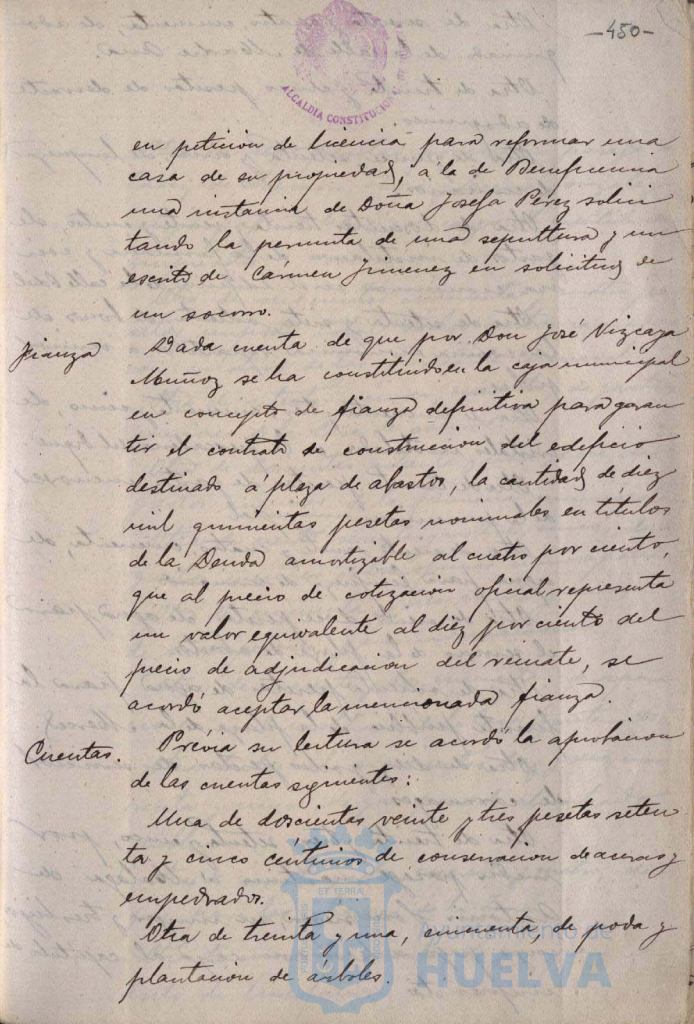 -450-
ALCALDIA CONSTITUCION
en petición de licencia para reformar una
casa de su propiedad, á la de Beneficencia
una instancia de Doña Josefa Pérez solici
tando la permuta de una sepultura y un
escrito de Cármen Jimenez en solicitud de
un socorro.
Fianza
Dada cuenta de que por Don José Vizcaya
Muñoz se ha constituido en la caja municipal
en concepto de fianza definitiva para garan
tir el contrato de construcion del edificio
destinado á plaza de abastos, la cantidad de diez
mil quinientas pesetas nominales en titulos
de la Deuda amortizible al cuatro por ciento,
que al precio de cotizacion oficial representa
un valor equivalente al diez por ciento del
precio de adjudicacion del remate, se
acordó aceptar la mencionada fianza.
Cuentas.
Prévia su lectura se acordó la aprobacion
de las cuentas siguientes:
Una de doscientas veinte y tres pesetas seten
ta y cinco céntimos de conservacion de aceras y
empedrados.
Otra de treinta y una, cincuenta, de poda y
plantacion de árboles.
ET TERRÆ
Ayuntamiento de
HUELVA